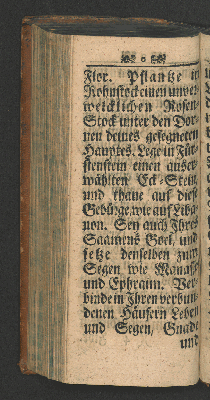 Flor. Pflantze in
Rohnstock einen unver-
welcklichen Rosen-
Stock unter den Dor-
nen deines gesegneten
Hauptes. Lege in Für-
stenstein einen auser-
wählten Eck-Stein,
und thaue auf diese
Gebürge, wie auf Liba-
non. Sey auch Ihres
Saamens Goel, und
setze denselben zum
Segen, wie Manasse
und Ephraim. Ver-
binde in Ihren verbun-
denen Häusern Leben
und Segen, Gnade
und